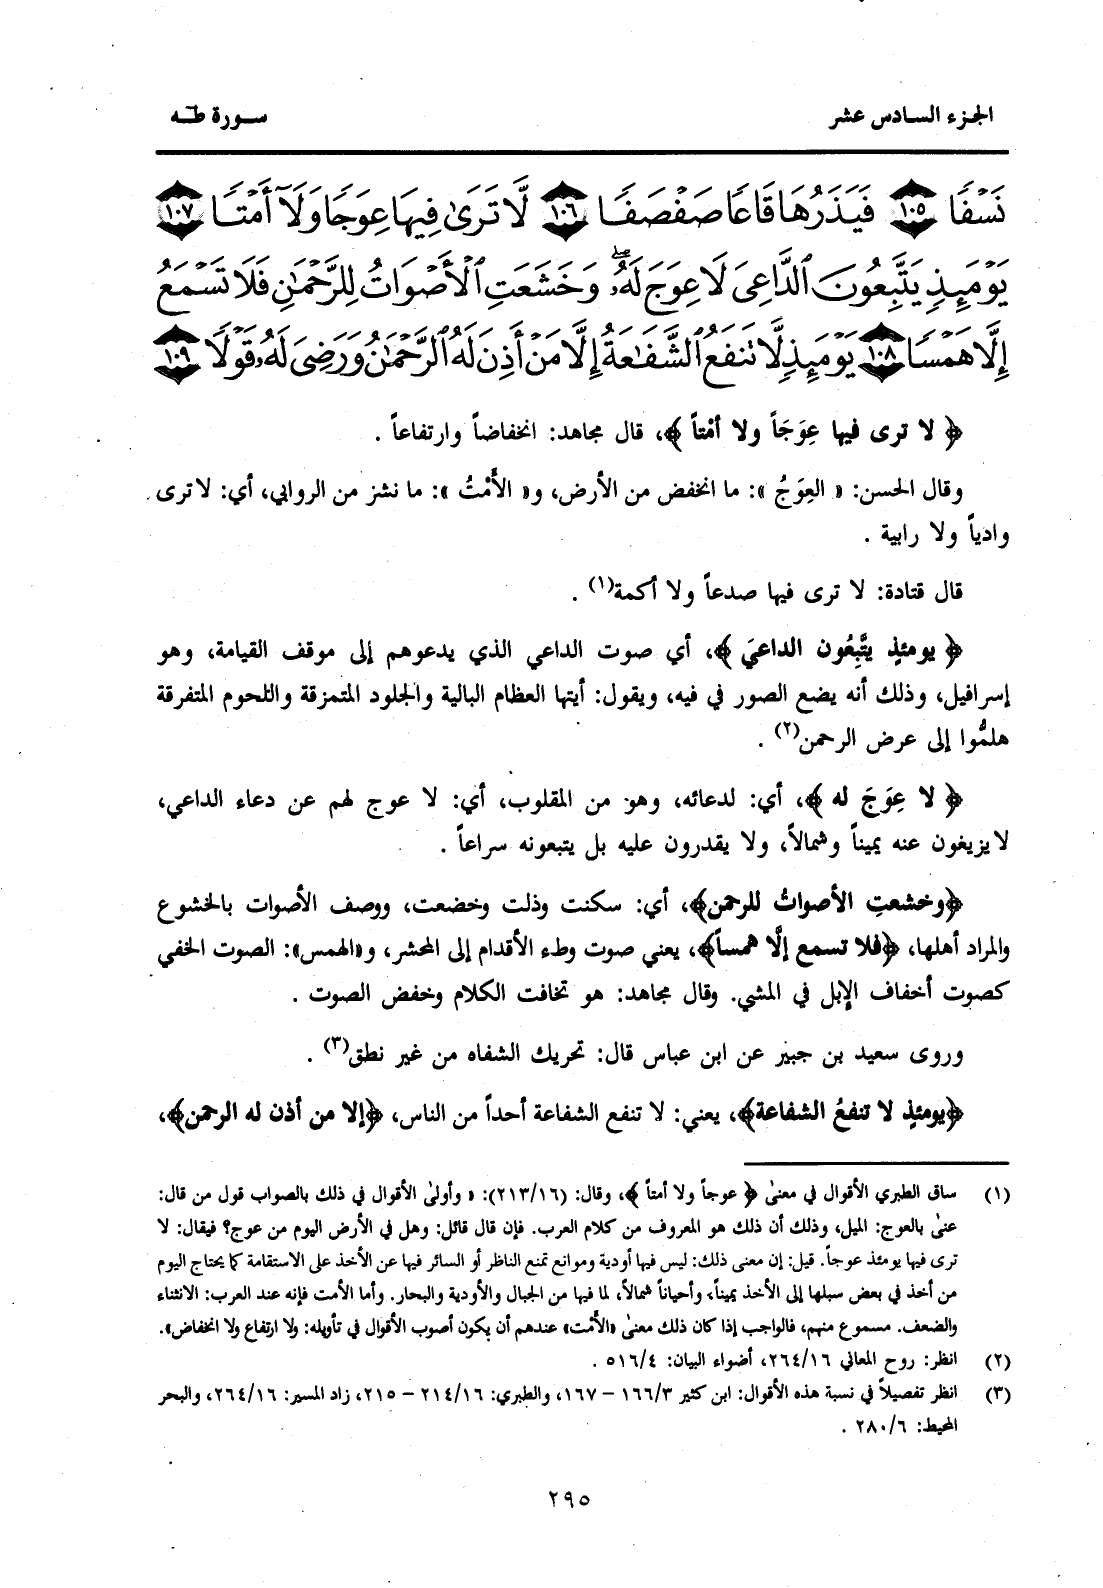 الجزء السادس عشر
سورة طه
نَسْفًا ١٠٥ فَيَذَرُهَا قَاعًا صَفْصَفًا ١٠٦ لَّا تَرَىٰ فِيهَا عِوَجًا وَلَآ أَمْتًا ١٠٧
يَوْمَئِذٍ يَتَّبِعُونَ ٱلدَّاعِىَ لَا عِوَجَ لَهُۥ ۖ وَخَشَعَتِ ٱلْأَصْوَاتُ لِلرَّحْمَٰنِ فَلَا تَسْمَعُ
إِلَّا هَمْسًا ١٠٨ يَوْمَئِذٍ لَّا تَنفَعُ ٱلشَّفَٰعَةُ إِلَّا مَنْ أَذِنَ لَهُ ٱلرَّحْمَٰنُ وَرَضِىَ لَهُۥ قَوْلًا ١٠٩
﴿ لا ترى فيها عِوَجَاً ولا أمْتاً ﴾، قال مجاهد: انخفاضاً وارتفاعاً .
وقال الحسن: « العِوَجُ »: ما انخفض من الأرض، و« الأَمْتُ »: ما نشز من الروابي، أي: لا ترى
وادياً ولا رابية .
قال قتادة: لا ترى فيها صدعاً ولا أكمة(١) .
﴿ يومئذٍ يتَّبِعُون الداعيَ ﴾، أي صوت الداعي الذي يدعوهم إلى موقف القيامة، وهو
إسرافيل، وذلك أنه يضع الصور في فيه، ويقول: أيتها العظام البالية والجلود المتمزقة واللحوم المتفرقة
هلمُّوا إلى عرض الرحمن(٢) .
﴿ لا عِوَجَ له ﴾، أي: لدعائه، وهو من المقلوب، أي: لا عوج لهم عن دعاء الداعي،
لا يزيغون عنه يميناً وشمالاً، ولا يقدرون عليه بل يتبعونه سراعاً .
﴿وخشعتِ الأصواتُ للرحمن﴾، أي: سكنت وذلت وخضعت، ووصف الأصوات بالخشوع
والمراد أهلها، ﴿فلا تسمع إلَّا همساً﴾، يعني صوت وطء الأقدام إلى المحشر، و«الهمس»: الصوت الخفي
كصوت أخفاف الإبل في المشي. وقال مجاهد: هو تخافت الكلام وخفض الصوت .
وروى سعيد بن جبير عن ابن عباس قال: تحريك الشفاه من غير نطق(٣) .
﴿يومئذٍ لا تنفعُ الشفاعة﴾، يعني: لا تنفع الشفاعة أحداً من الناس، ﴿إلا من أذن له الرحمن﴾،
(١) ساق الطبري الأقوال في معنىٰ ﴿ عوجاً ولا أمتاً ﴾، وقال: (٢١٣/١٦): « وأولىٰ الأقوال في ذلك بالصواب قول من قال:
عنىٰ بالعوج: الميل، وذلك أن ذلك هو المعروف من كلام العرب. فإن قال قائل: وهل في الأرض اليوم من عوج؟ فيقال: لا
ترى فيها يومئذ عوجاً. قيل: إن معنى ذلك: ليس فيها أودية وموانع تمنع الناظر أو السائر فيها عن الأخذ على الاستقامة كما يحتاج اليوم
من أخذ في بعض سبلها إلى الأخذ يميناً، وأحياناً شمالاً، لما فيها من الجبال والأودية والبحار. وأما الأمت فإنه عند العرب: الانثناء
والضعف. مسموع منهم، فالواجب إذا كان ذلك معنىٰ «الأَمْت» عندهم أن يكون أصوب الأقوال في تأويله: ولا ارتفاع ولا انخفاض».
(٢) انظر: روح المعاني ٢٦٤/١٦، أضواء البيان: ٥١٦/٤ .
(٣) انظر تفصيلاً في نسبة هذه الأقوال: ابن كثير ١٦٦/٣ – ١٦٧، والطبري: ٢١٤/١٦ – ٢١٥، زاد المسير: ٢٦٤/١٦، والبحر
المحيط: ٢٨٠/٦ .
٢٩٥